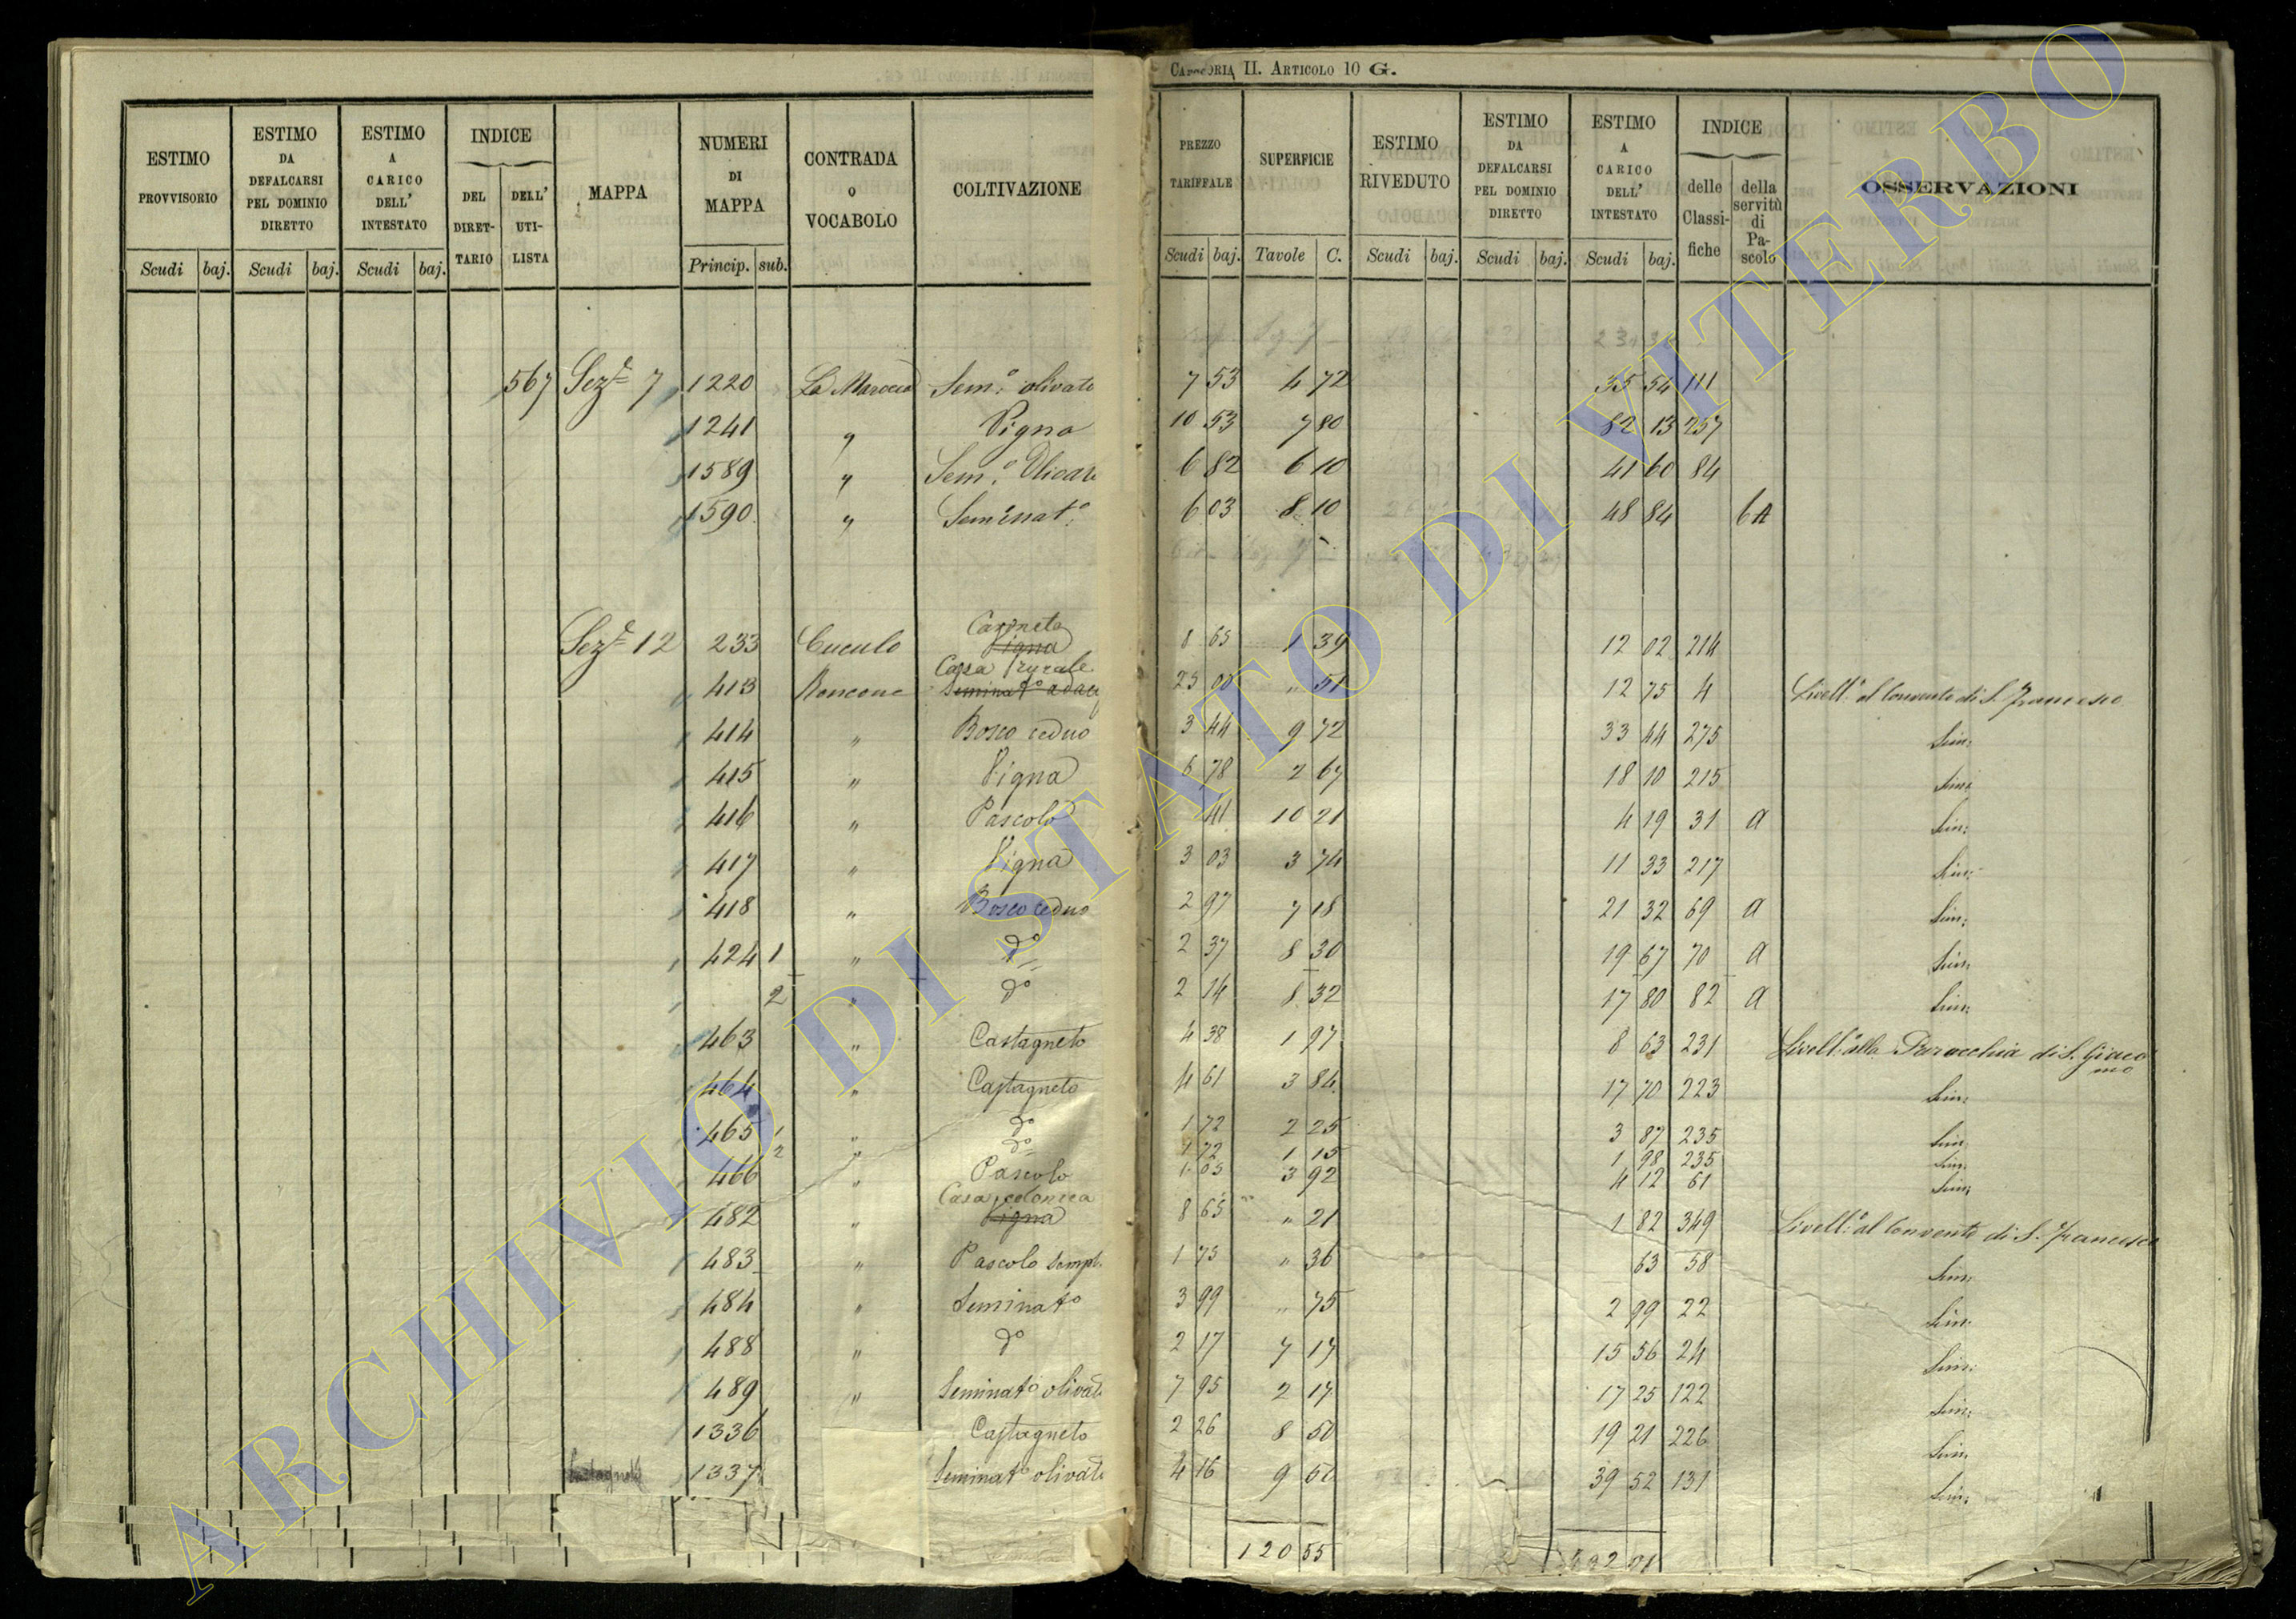 CATEGORIA II. ARTICOLO 10 G.
ESTIMO PROVVISORIO
ESTIMO DA DEFALCARSI PEL DOMINIO DIRETTO
ESTIMO A CARICO DELL' INTESTATO
INDICE
DEL DIRETTARIO
DELL' UTILISTA
MAPPA
NUMERI DI MAPPA
CONTRADA O VOCABOLO
COLTIVAZIONE
PREZZO TARIFFALE
SUPERFICIE
ESTIMO RIVEDUTO
ESTIMO DA DEFALCARSI PEL DOMINIO DIRETTO
ESTIMO A CARICO DELL' INTESTATO
INDICE
delle Classifiche
della servitù di Pascolo
OSSERVAZIONI
Scudi baj. Scudi baj. Scudi baj. Princip. sub. Scudi baj. Tavole C. Scudi baj. Scudi baj. Scudi baj.
567 Sezne 7 1220 La Maroccia Sem.o olivato 7 53 4 72 35 54 111
1241 " Vigna 10 53 7 80 82 13 257
1589 " Sem.o 6 82 6 10 41 60 84
1590 " Seminat.o 6 03 8 10 48 84 6A
Sezne 12 233 Cuculo Canneto Vigna 8 65 1 39 12 02 214
413 Roncone Casa rurale Seminato adacq 25 00 " 51 12 75 4 Livell.o al Convento di S. Francesco
414 " Bosco ceduo 3 44 9 72 33 44 275 Sim:
415 " Vigna 6 78 2 67 18 10 215 Sim:
416 " Pascolo 41 10 21 4 19 31 a Sim:
417 " Vigna 3 03 3 74 11 33 217 Sim:
418 " Bosco ceduo 2 97 7 18 21 32 69 a Sim:
424 1 " do 2 37 8 30 19 67 70 a Sim:
2 " do 2 14 8 32 17 80 82 a Sim:
463 " Castagneto 4 38 1 97 8 63 231 Livell.o alla Parocchia di S. Giacomo
464 " Castagneto 4 61 3 84 17 70 223 Sim:
465 1 " do 1 72 2 25 3 87 235 Sim:
2 " do 1 72 1 15 1 98 235 Sim:
466 " Pascolo 1 05 3 92 4 12 61 Sim:
482 " Casa colonica Vigna 8 65 " 21 1 82 349 Livell.o al Convento di S. Francesco
483 " Pascolo sempl. 1 75 " 36 63 58 Sim:
484 " Seminato 3 99 " 75 2 99 22 Sim:
488 " do 2 17 7 17 15 56 24 Sim:
489 " Seminato olivato 7 95 2 17 17 25 122 Sim:
1336 Castagneto 2 26 8 50 19 21 226 Sim:
1337 Seminato olivato 4 16 9 50 39 52 131 Sim:
120 55
ARCHIVIO DI STATO DI VITERBO